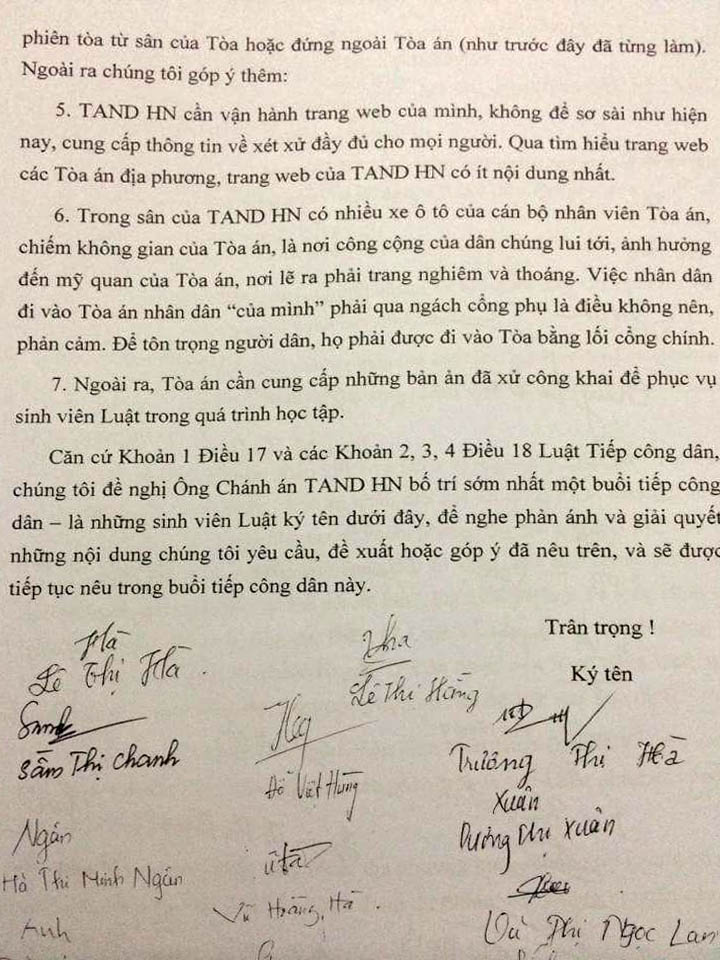 phiên tòa từ sân của Tòa hoặc đứng ngoài Tòa án (như trước đây đã từng làm).
Ngoài ra chúng tôi góp ý thêm:
5. TAND HN cần vận hành trang web của mình, không để sơ sài như hiện
nay, cung cấp thông tin về xét xử đầy đủ cho mọi người. Qua tìm hiểu trang web
các Tòa án địa phương, trang web của TAND HN có ít nội dung nhất.
6. Trong sân của TAND HN có nhiều xe ô tô của cán bộ nhân viên Tòa án,
chiếm không gian của Tòa án, là nơi công cộng của dân chúng lui tới, ảnh hưởng
đến mỹ quan của Tòa án, nơi lẽ ra phải trang nghiêm và thoáng. Việc nhân dân
đi vào Tòa án nhân dân “của mình” phải qua ngách cổng phụ là điều không nên,
phản cảm. Để tôn trọng người dân, họ phải được đi vào Tòa bằng lối cổng chính.
7. Ngoài ra, Tòa án cần cung cấp những bản án đã xử công khai để phục vụ
sinh viên Luật trong quá trình học tập.
Căn cứ Khoản 1 Điều 17 và các Khoản 2, 3, 4 Điều 18 Luật Tiếp công dân,
chúng tôi đề nghị Ông Chánh án TAND HN bố trí sớm nhất một buổi tiếp công
dân – là những sinh viên Luật ký tên dưới đây, để nghe phản ánh và giải quyết
những nội dung chúng tôi yêu cầu, đề xuất hoặc góp ý đã nêu trên, và sẽ được
tiếp tục nêu trong buổi tiếp công dân này.
Trân trọng !
Ký tên
Hà
Lê Thị Hà .
Lê Thi Hằng
Sầm Thị Chanh
Đỗ Việt Hùng
Trương Thị Hà
Xuân
Dương Thị Xuân
Ngân
Hà Thi Minh Ngân
Vũ Hoàng Hà .
Vũ Thị Ngọc Lan
Anh